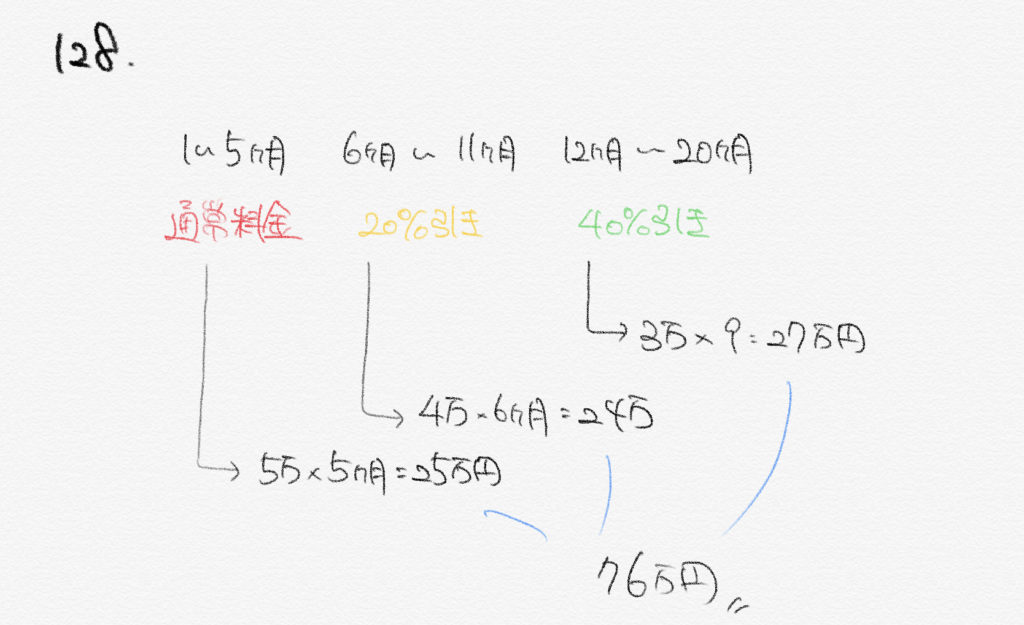 128.
1〜5ヶ月 6ヶ月〜11ヶ月 12ヶ月〜20ヶ月
通常料金 20%引き 40%引き
3万×9=27万円
4万×6ヶ月=24万
5万×5ヶ月=25万円
76万円〃